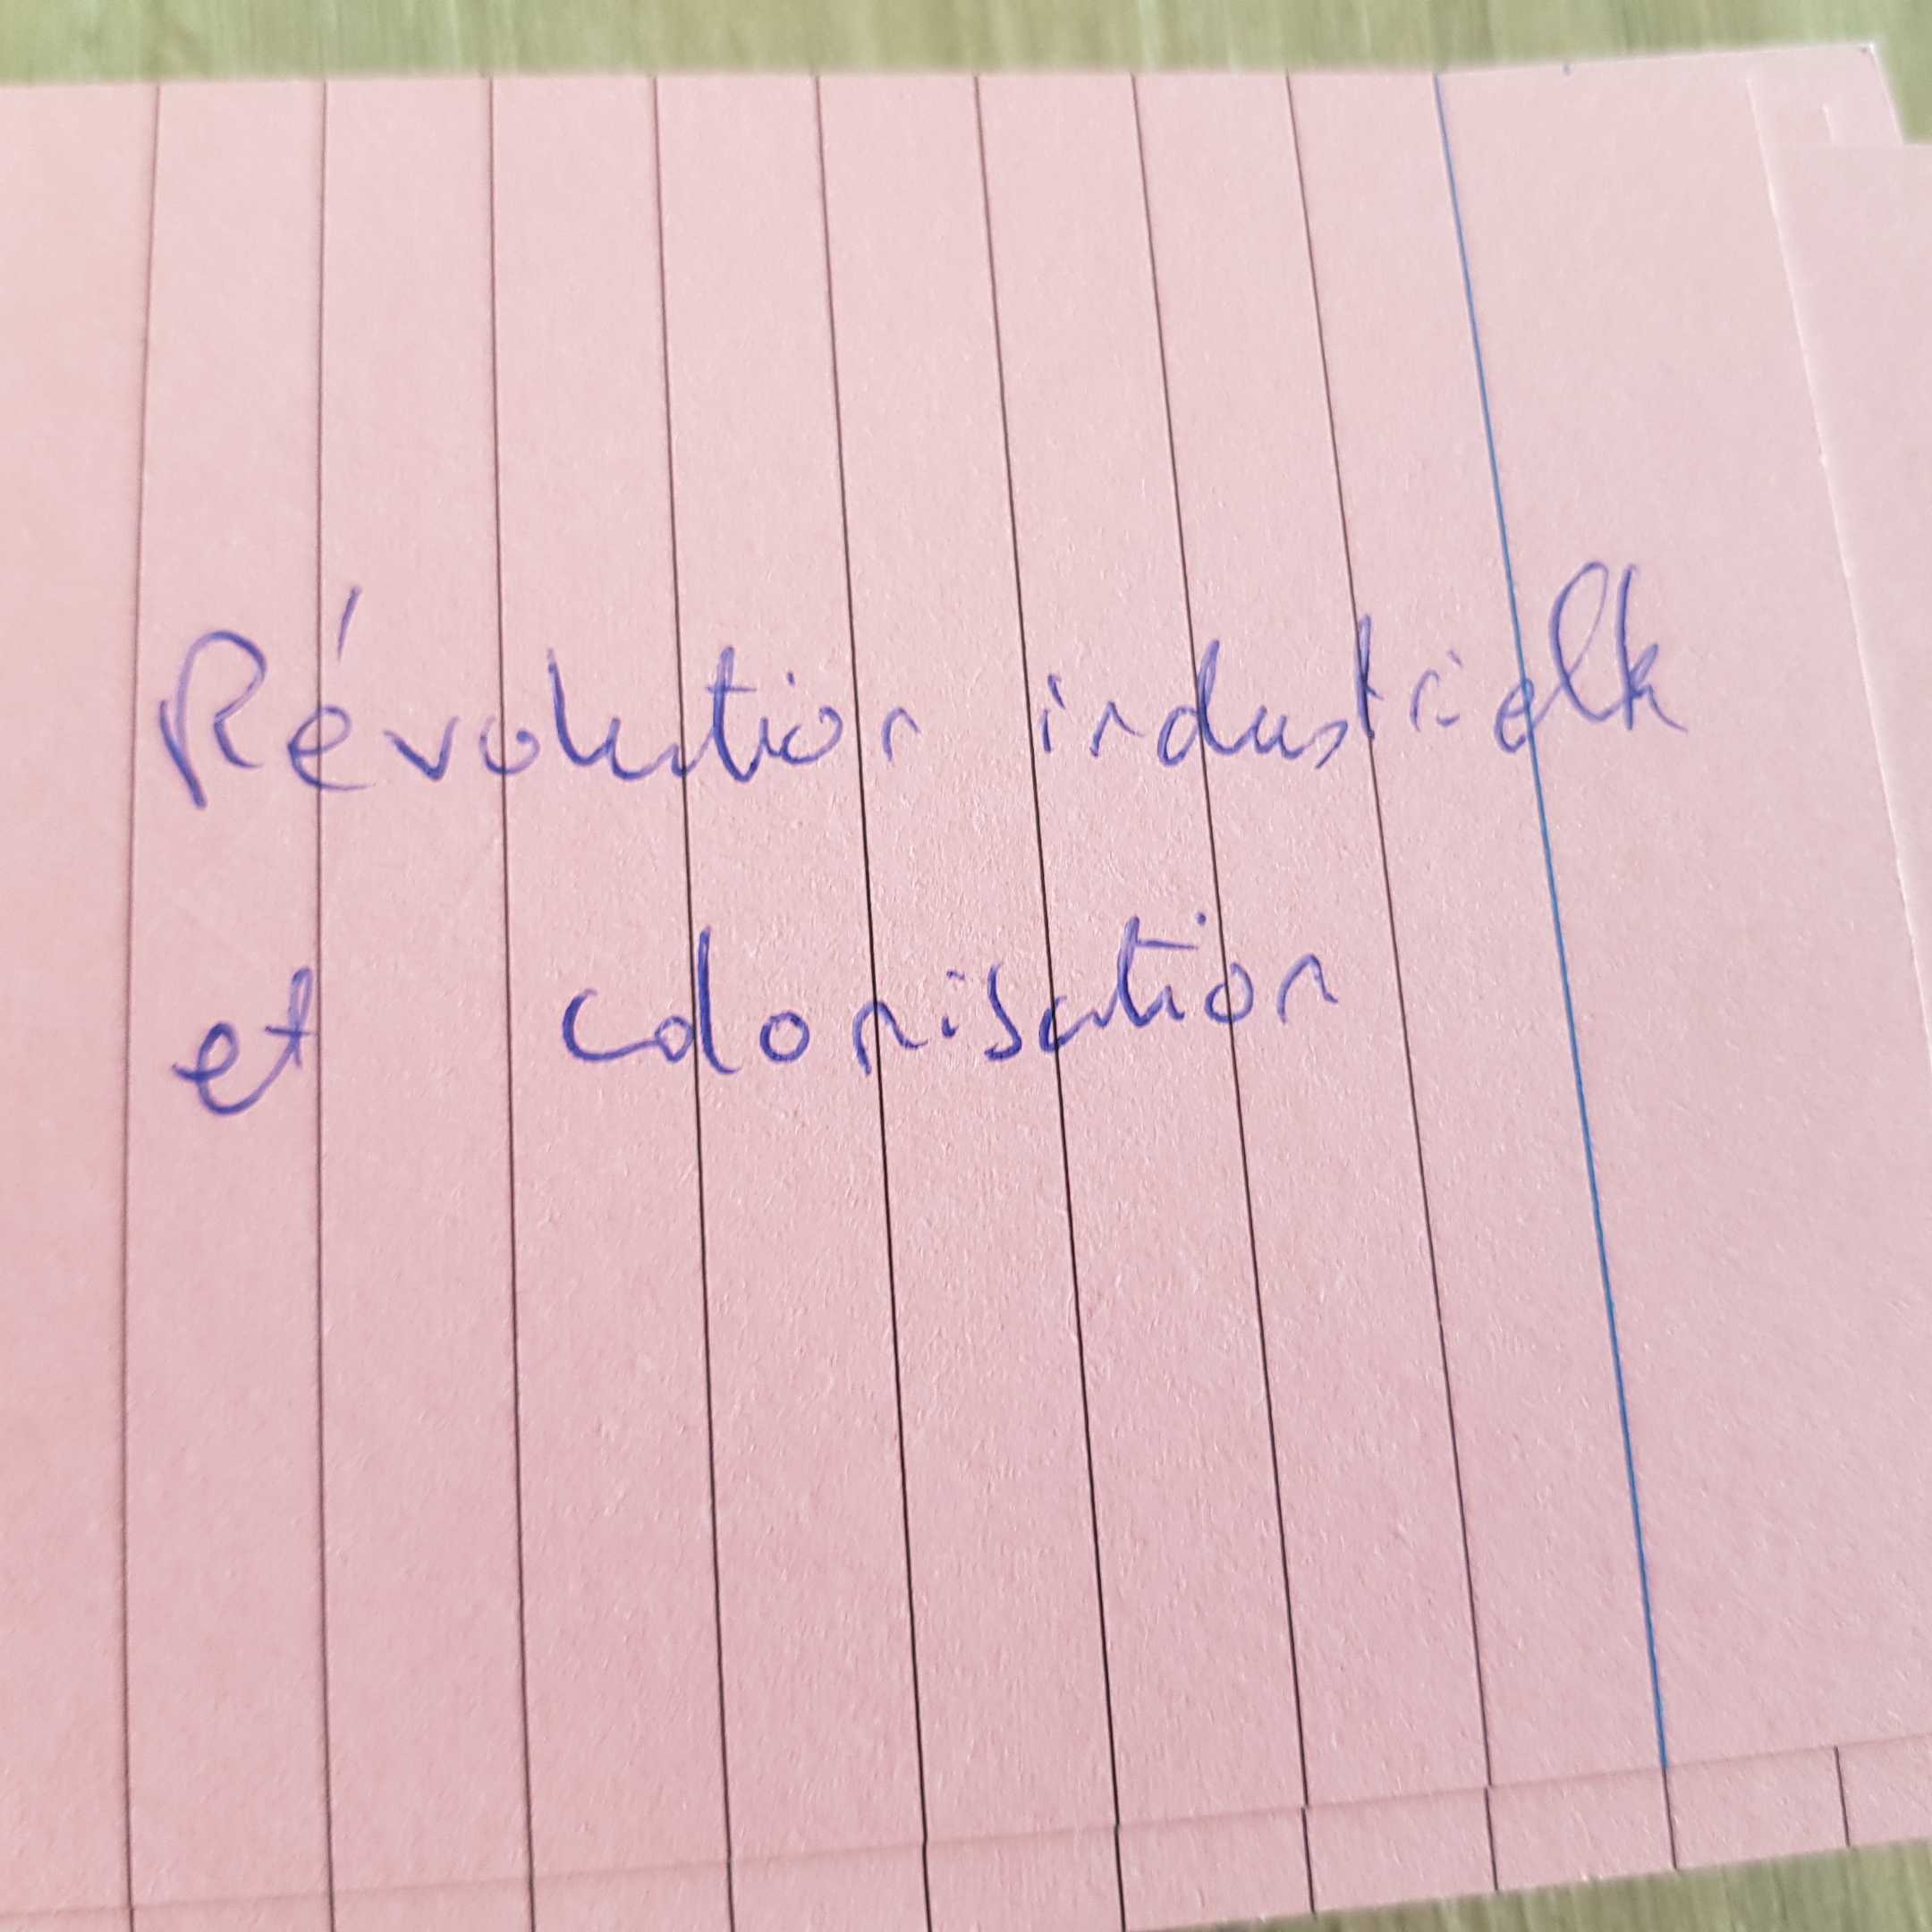 Révolution industrielle
et colonisation